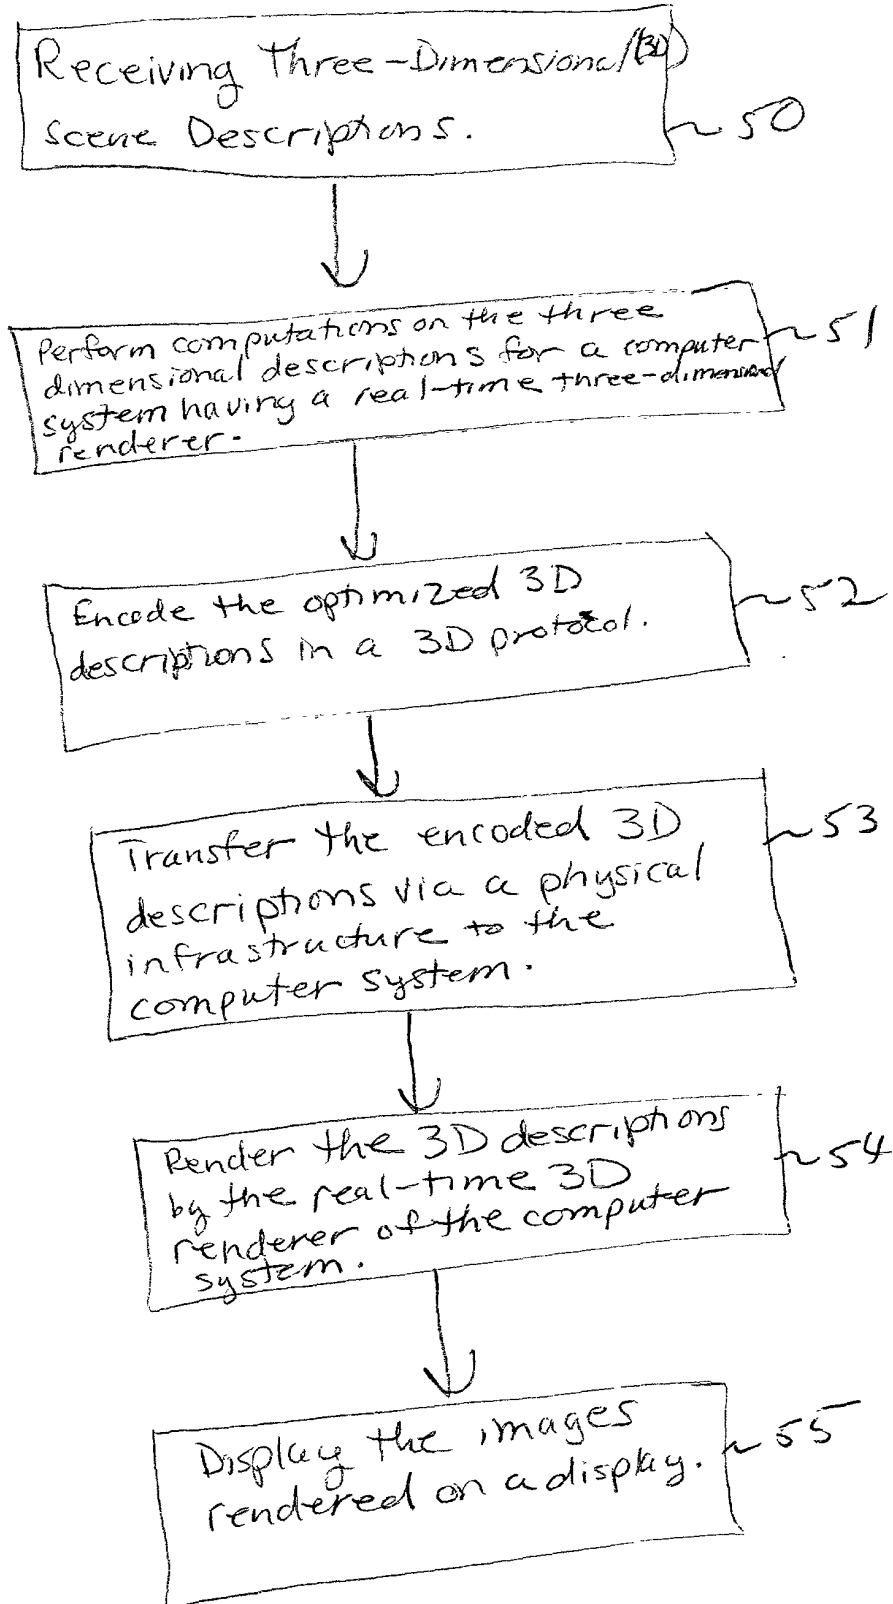 Receiving Three-Dimensional (3D)
Scene Descriptions.
~50
Perform computations on the three
dimensional descriptions for a computer
system having a real-time three-dimensional
renderer.
~51
Encode the optimized 3D
descriptions in a 3D protocol.
~52
Transfer the encoded 3D
descriptions via a physical
infrastructure to the
computer system.
~53
Render the 3D descriptions
by the real-time 3D
renderer of the computer
system.
~54
Display the images
rendered on a display.
~55